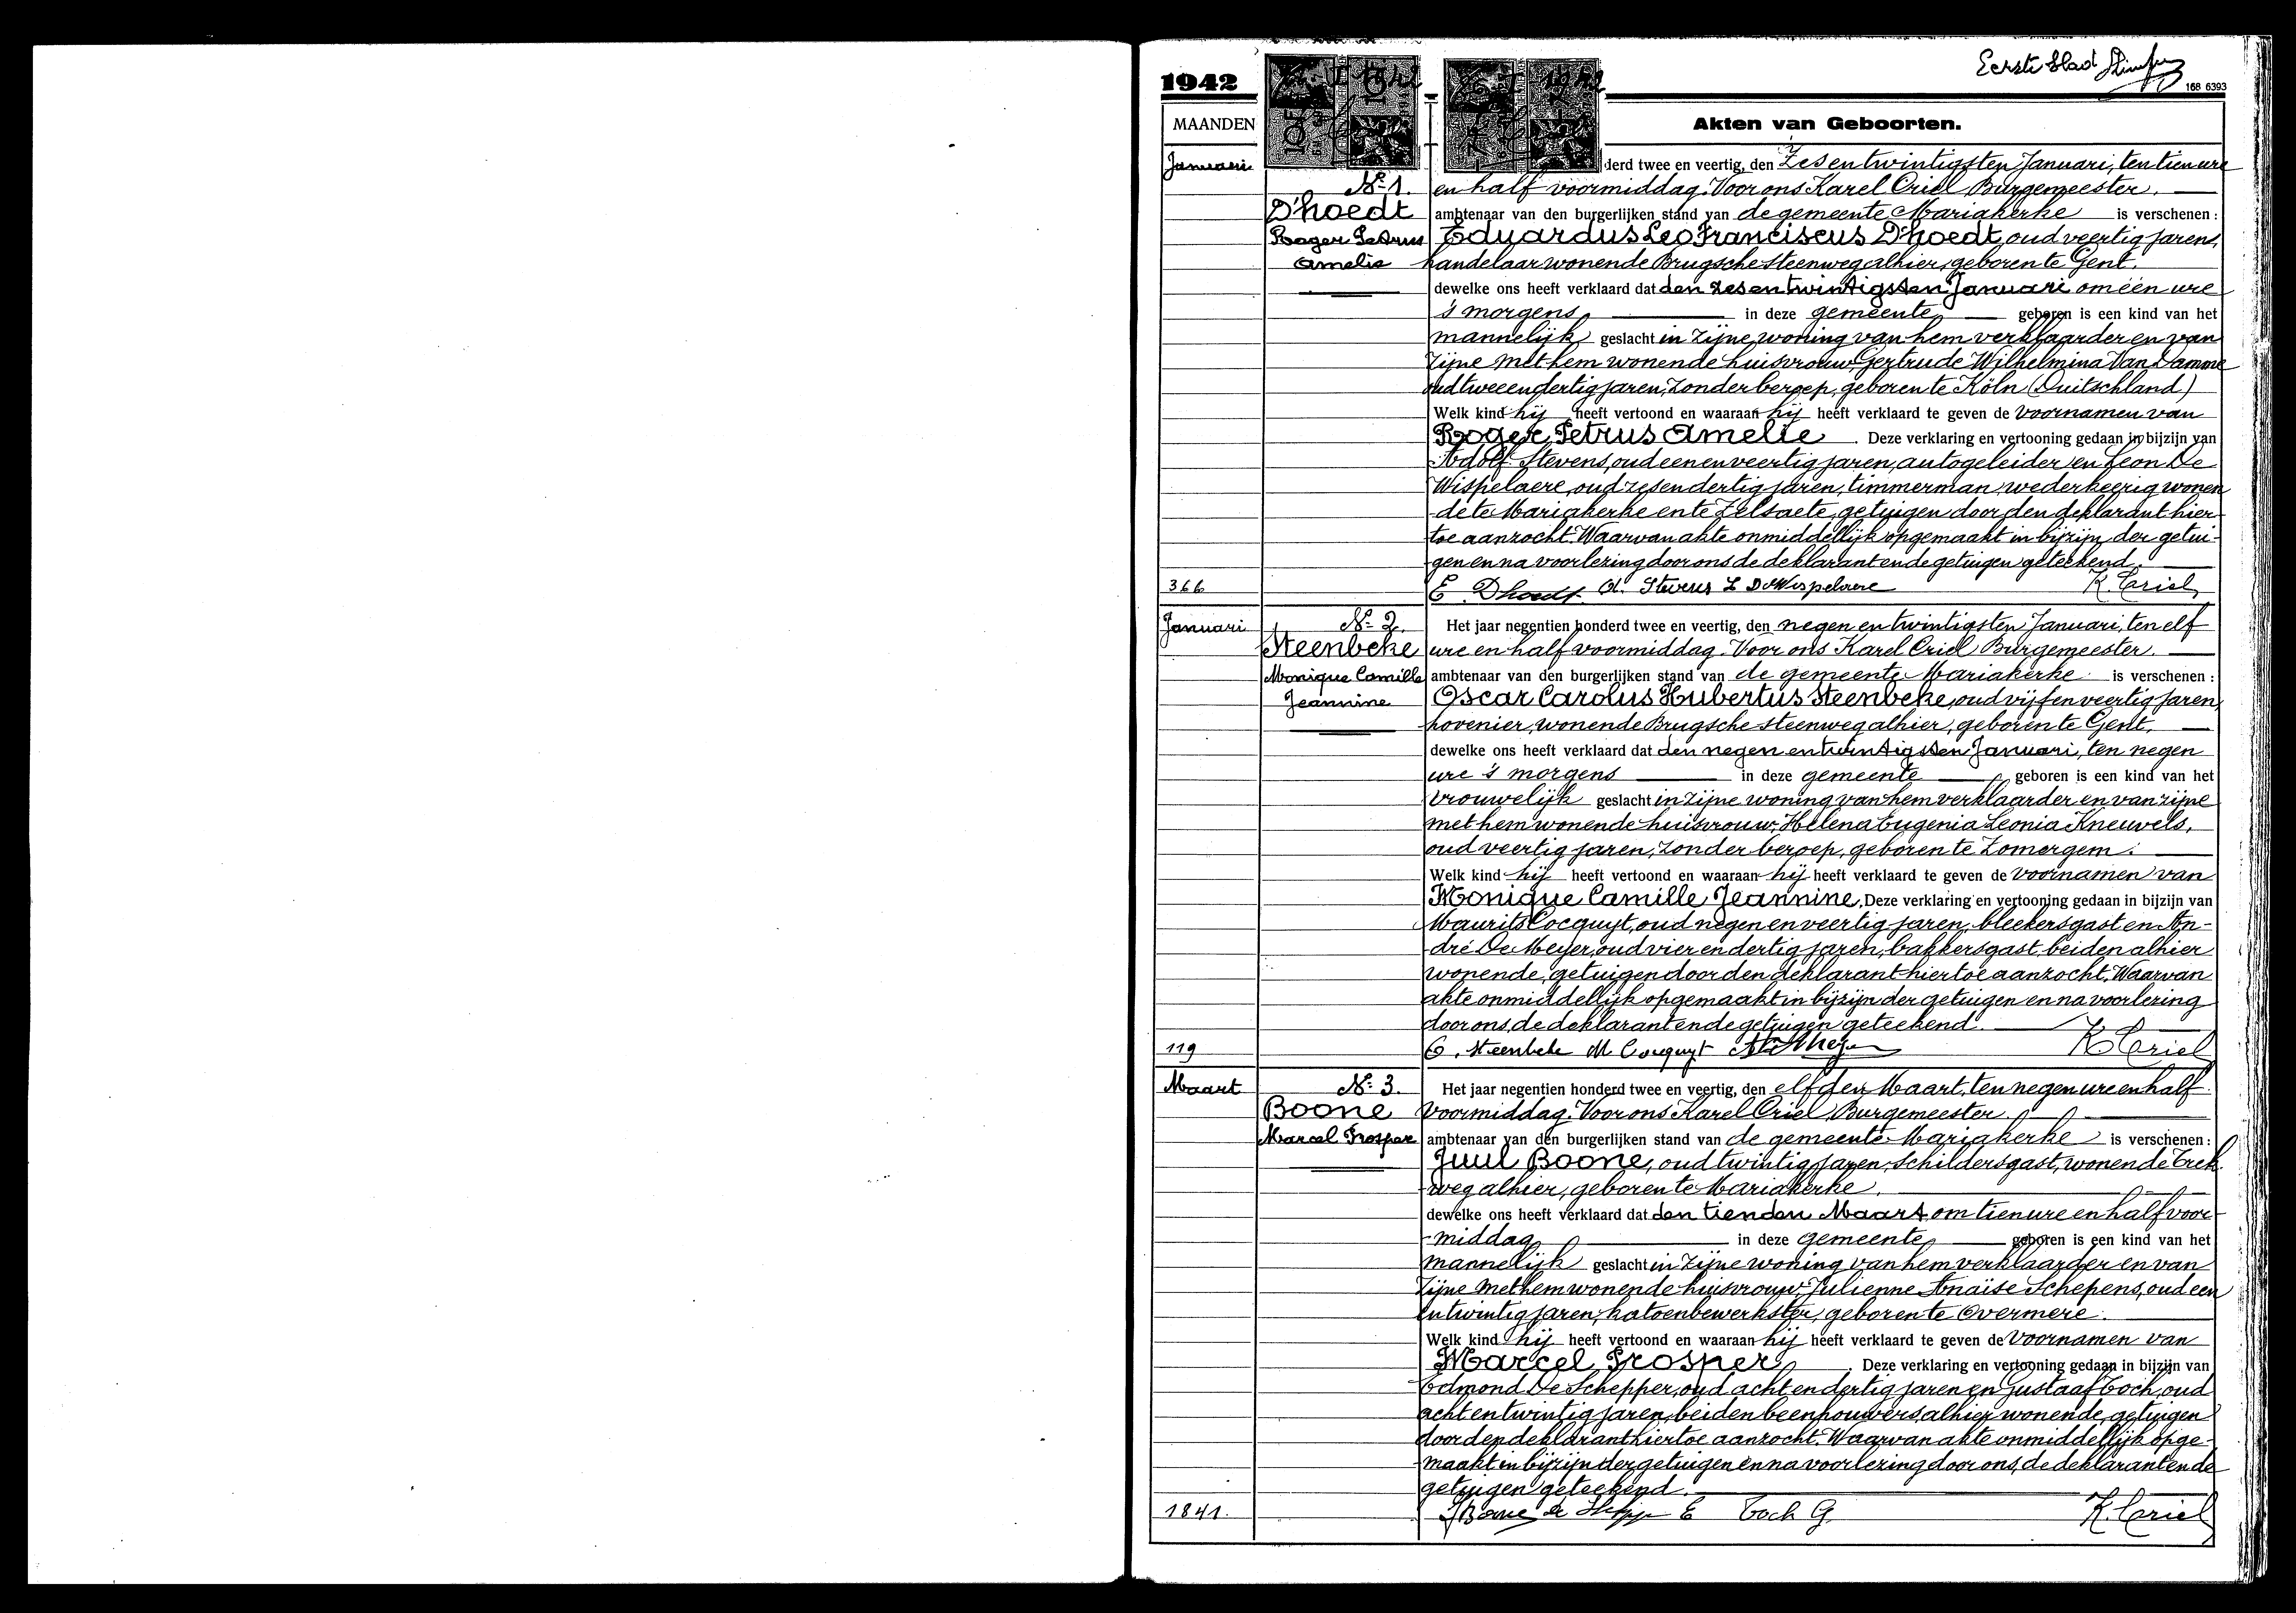 Eerste blad
168 6393
1942
MAANDEN
Akten van Geboorten.
Januari
derd twee en veertig, den Zesentwintigsten Januari, ten tien ure
Nr 1. en half voormiddag. Voor ons Karel Criel Burgemeester.
D'hoedt ambtenaar van den burgerlijken stand van de gemeente Mariakerke is verschenen:
Roger Petrus Eduardus Leo Franciscus D'hoedt, oud veertig jaren,
Amelie handelaar wonende Brugsche steenweg alhier, geboren te Gent.
dewelke ons heeft verklaard dat den zesentwintigsten Januari om één ure
's morgens in deze gemeente geboren is een kind van het
mannelijk geslacht in zijne woning van hem verklaarder en van
zijne met hem wonende huisvrouw, Gertrude Wilhelmina Van Damme
oud tweeendertig jaren, zonder beroep, geboren te Köln (Duitschland)
Welk kind hij heeft vertoond en waaraan hij heeft verklaard te geven de voornamen van
Roger Petrus Amelie. Deze verklaring en vertooning gedaan in bijzijn van
Adolf Stevens, oud eenenveertig jaren, autogeleider en Leon De
Wispelaere, oud zesendertig jaren, timmerman, wederkeerig wonen
de te Mariakerke en te Zelsaete, getuigen door den deklarant hier-
toe aanzocht. Waarvan akte onmiddellijk opgemaakt in bijzijn der getui-
gen en na voorlezing door ons de deklarant en de getuigen geteekend.
366 E Dhoedt A. Stevens L De Wispelaere K. Criel
Januari Nr 2. Het jaar negentien honderd twee en veertig, den negenentwintigsten Januari, ten elf
Steenbeke ure en half voormiddag. Voor ons Karel Criel Burgemeester.
Monique Camille ambtenaar van den burgerlijken stand van de gemeente Mariakerke is verschenen:
Jeannine Oscar Carolus Hubertus Steenbeke, oud vijfenveertig jaren,
hovenier, wonende Brugsche steenweg alhier, geboren te Gent.
dewelke ons heeft verklaard dat den negenentwintigsten Januari, ten negen
ure 's morgens in deze gemeente geboren is een kind van het
vrouwelijk geslacht in zijne woning van hem verklaarder en van zijne
met hem wonende huisvrouw, Helena Eugenia Leonia Kneuvels,
oud veertig jaren, zonder beroep, geboren te Zomergem.
Welk kind hij heeft vertoond en waaraan hij heeft verklaard te geven de voornamen van
Monique Camille Jeannine. Deze verklaring en vertooning gedaan in bijzijn van
Maurits Cocquyt, oud negenenveertig jaren, bleekersgast en An-
dré De Meyer, oud vierendertig jaren, bakkersgast, beiden alhier
wonende, getuigen door den deklarant hiertoe aanzocht. Waarvan
akte onmiddellijk opgemaakt in bijzijn der getuigen en na voorlezing
door ons, de deklarant en de getuigen geteekend.
119 O. Steenbeke M Cocquyt K Criel
Maart Nr 3. Het jaar negentien honderd twee en veertig, den elfden Maart, ten negen ure en half
Boone voormiddag. Voor ons Karel Criel Burgemeester
Marcel Prosper ambtenaar van den burgerlijken stand van de gemeente Mariakerke is verschenen:
Juul Boone, oud twintig jaren, schildersgast, wonende Trek
weg alhier, geboren te Mariakerke.
dewelke ons heeft verklaard dat den tienden Maart om tien ure en half voor-
middag in deze gemeente geboren is een kind van het
mannelijk geslacht in zijne woning van hem verklaarder en van
zijne met hem wonende huisvrouw, Julienne Anaïse Schepens, oud een
entwintig jaren, katoenbewerkster, geboren te Overmere.
Welk kind hij heeft vertoond en waaraan hij heeft verklaard te geven de voornamen van
Marcel Prosper. Deze verklaring en vertooning gedaan in bijzijn van
Edmond De Schepper, oud achtendertig jaren en Gustaaf Coch, oud
achtentwintig jaren, beiden beenhouwers, alhier wonende, getuigen
door den deklarant hiertoe aanzocht. Waarvan akte onmiddellijk opge-
maakt in bijzijn der getuigen en na voorlezing door ons, de deklarant en de
getuigen geteekend.
1841. J Boone E Coch G. K. Criel